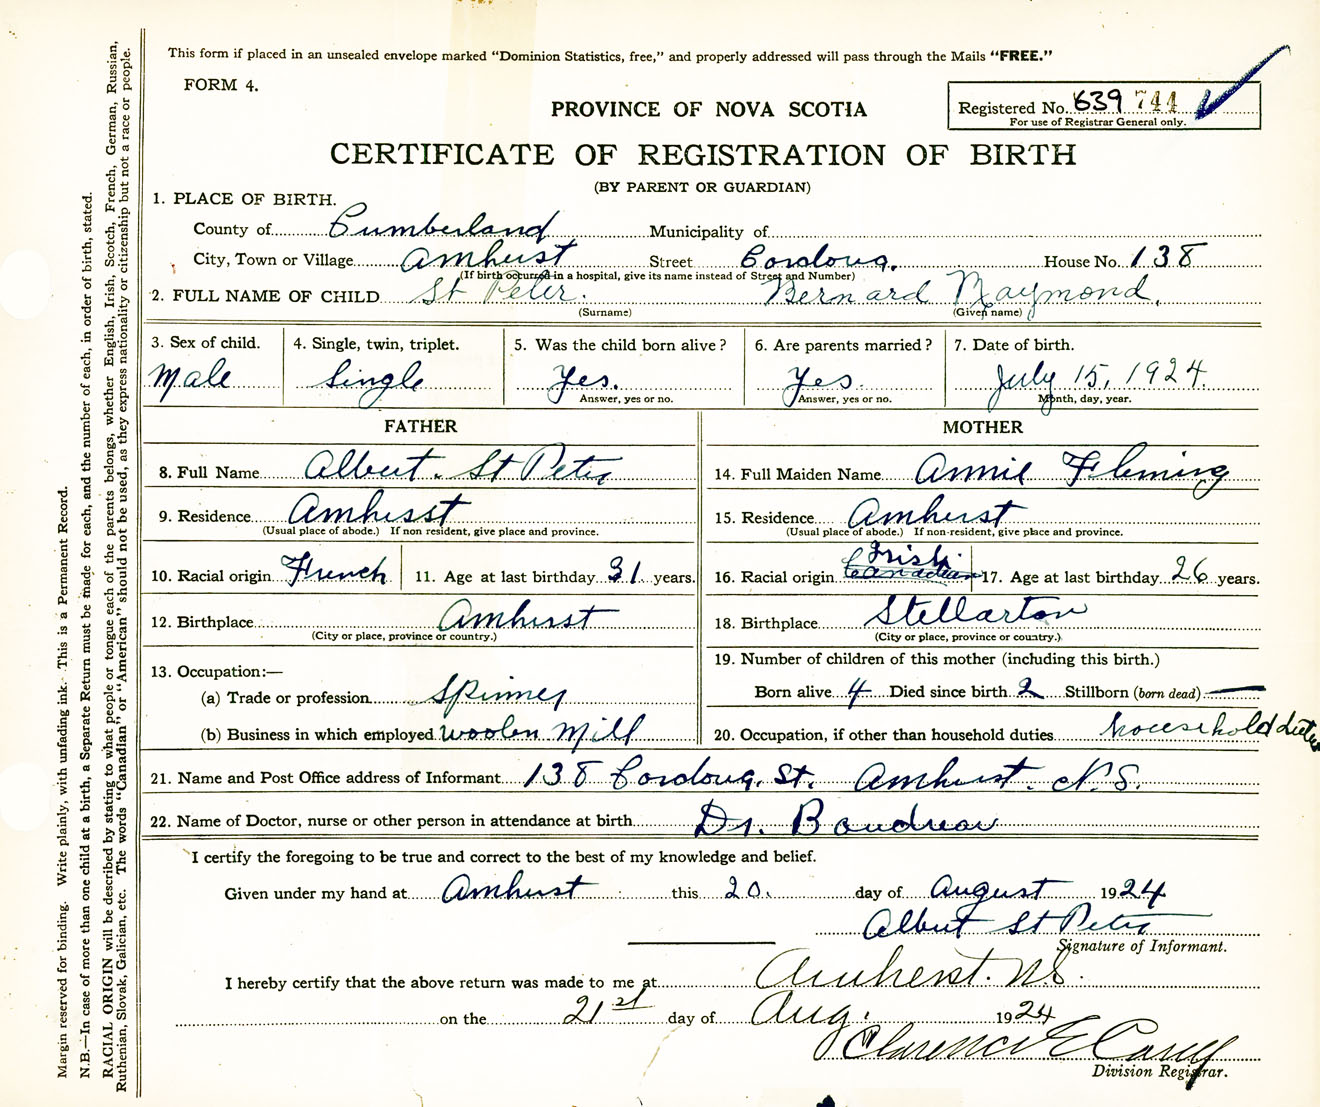 This form if placed in an unsealed envelope marked "Dominion Statistics, free," and properly addressed will pass through the Mails "FREE."
FORM 4.
PROVINCE OF NOVA SCOTIA
Registered No. 639 744
For use of Registrar General only.
CERTIFICATE OF REGISTRATION OF BIRTH
(BY PARENT OR GUARDIAN)
1. PLACE OF BIRTH.
County of Cumberland Municipality of
City, Town or Village Amherst Street Cordova. House No. 138
(If birth occurred in a hospital, give its name instead of Street and Number)
2. FULL NAME OF CHILD St Peter. Bernard Raymond.
(Surname) (Given name)
3. Sex of child. 4. Single, twin, triplet. 5. Was the child born alive? 6. Are parents married? 7. Date of birth.
Male Single Yes. Yes. July 15, 1924.
Answer, yes or no. Answer, yes or no. Month, day, year.
FATHER MOTHER
8. Full Name Albert. St Peter 14. Full Maiden Name Annie Fleming
9. Residence Amherst 15. Residence Amherst
(Usual place of abode.) If non resident, give place and province. (Usual place of abode.) If non-resident, give place and province.
Irish.
10. Racial origin French 11. Age at last birthday 31 years. 16. Racial origin Canadian 17. Age at last birthday 26 years.
12. Birthplace Amherst 18. Birthplace Stellarton
(City or place, province or country.) (City or place, province or country.)
13. Occupation:— 19. Number of children of this mother (including this birth.)
(a) Trade or profession Spinner Born alive 4 Died since birth 2 Stillborn (born dead) —
(b) Business in which employed Woolen Mill 20. Occupation, if other than household duties household duties
21. Name and Post Office address of Informant 138 Cordova. St. Amherst. N.S.
22. Name of Doctor, nurse or other person in attendance at birth Dr. Boudreau
I certify the foregoing to be true and correct to the best of my knowledge and belief.
Given under my hand at Amherst this 20. day of August 1924
Albert St Peter
Signature of Informant.
I hereby certify that the above return was made to me at Amherst. N.S.
on the 21st day of Aug. 1924
Clarence E Casey
Division Registrar.
Margin reserved for binding. Write plainly, with unfading ink. This is a Permanent Record.
N.B.—In case of more than one child at a birth, a Separate Return must be made for each, and the number of each, in order of birth, stated.
RACIAL ORIGIN will be described by stating to what people or tongue each of the parents belongs, whether English, Irish, Scotch, French, German, Russian,
Ruthenian, Slovak, Galician, etc. The words "Canadian" or "American" should not be used, as they express nationality or citizenship but not a race or people.